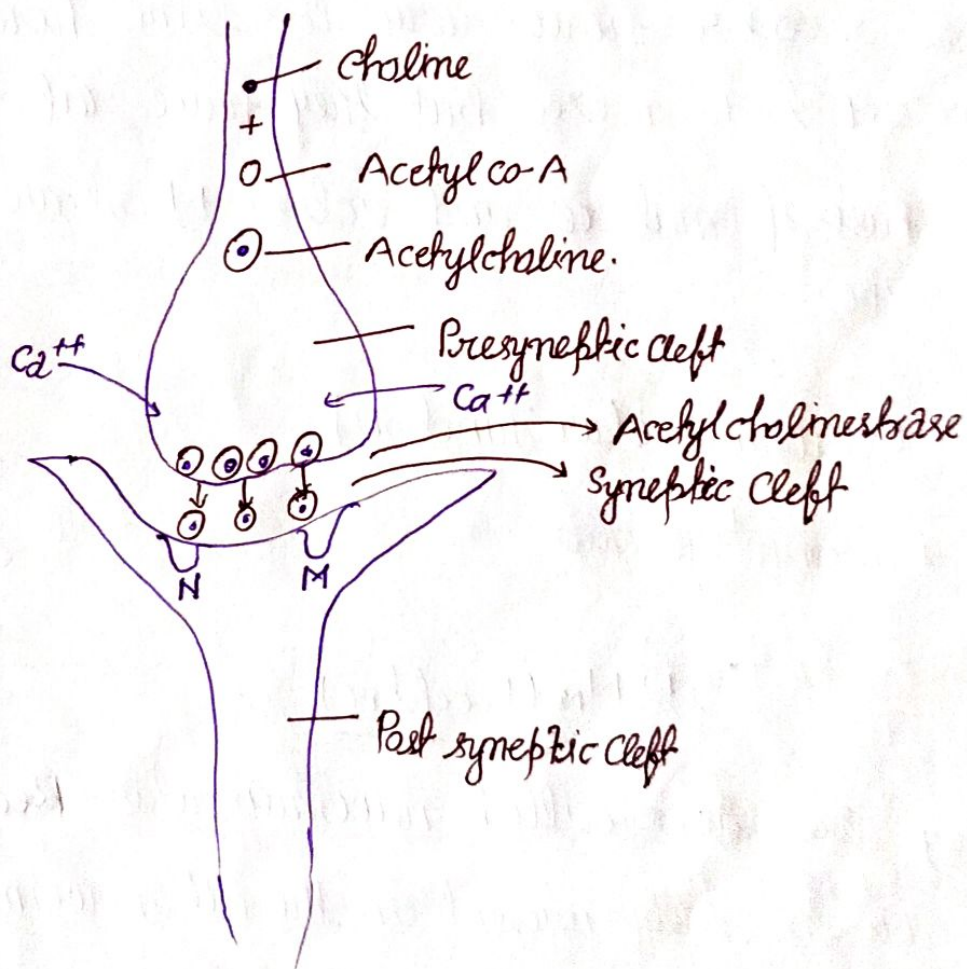 choline
+
Acetyl co-A
Acetylcholine.
Presyneptic cleft
Ca++
Ca++
Acetylcholinestrase
Syneptic Cleft
N
M
Post syneptic cleft